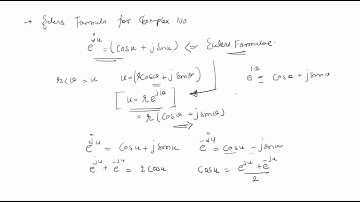 → Eulers Formula for Complex No
e^{ju} = (Cosu + jSinu) <= Eulers Formulae.
r∠θ = u u = (rCosθ + jSinθ) e^{jθ} = Cosθ + jSinθ
[u = re^{jθ}]
= r(Cosθ + jSinθ)
e^{ju} = Cosu + jSinu e^{-ju} = Cosu - jSinu
e^{ju} + e^{-ju} = 2Cosu Cosu = \frac{e^{ju} + e^{-ju}}{2}